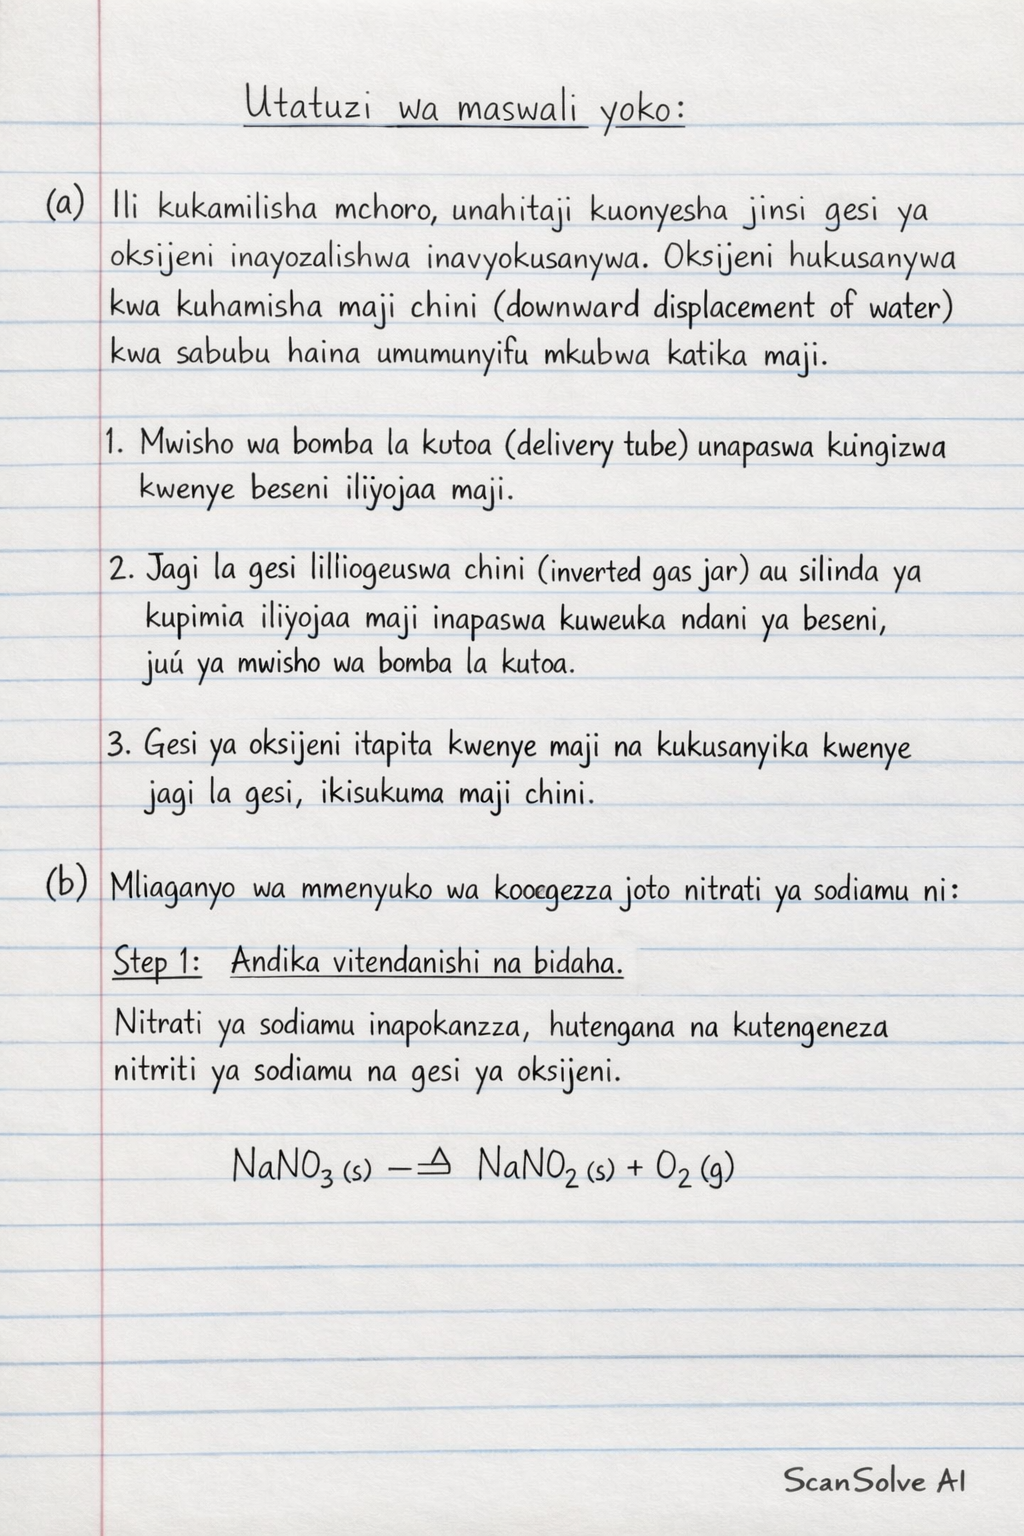 Utatuzi wa maswali yoko:
(a) Ili kukamilisha mchoro, unahitaji kuonyesha jinsi gesi ya
oksijeni inayozalishwa inavyokusanywa. Oksijeni hukusanywa
kwa kuhamisha maji chini (downward displacement of water)
kwa sabubu haina umumunyifu mkubwa katika maji.
1. Mwisho wa bomba la kutoa (delivery tube) unapaswa kuingizwa
kwenye beseni iliyojaa maji.
2. Jagi la gesi lilliogeuswa chini (inverted gas jar) au silinda ya
kupimia iliyojaa maji inapaswa kuweuka ndani ya beseni,
juú ya mwisho wa bomba la kutoa.
3. Gesi ya oksijeni itapita kwenye maji na kukusanyika kwenye
jagi la gesi, ikisukuma maji chini.
(b) Mliaganyo wa mmenyuko wa joto nitrati ya sodiamu ni:
Step 1: Andika vitendanishi na bidaha.
Nitrati ya sodiamu inapokanzza, hutengana na kutengeneza
nitrriti ya sodiamu na gesi ya oksijeni.
NaNO₃ (s) —≙ NaNO₂ (s) + O₂ (g)
ScanSolve AI